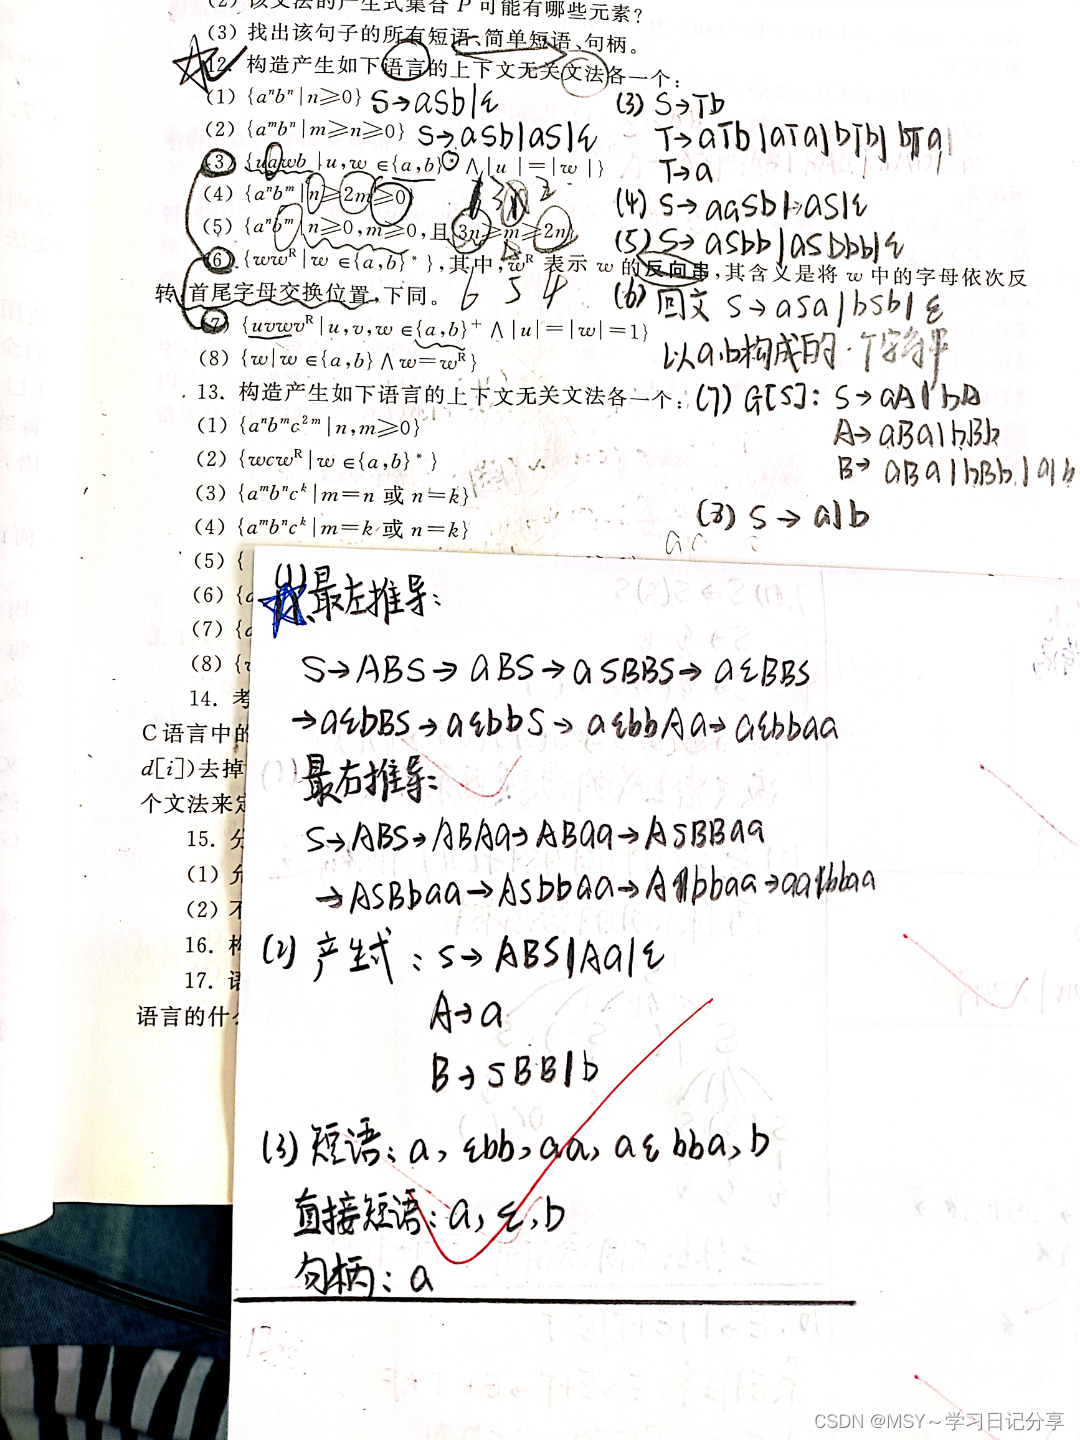 (2) 该文法的产生式集合 P 可能有哪些元素?
(3) 找出该句子的所有短语、简单短语、句柄。
12. 构造产生如下语言的上下文无关文法各一个:
(1) {aⁿbⁿ|n≥0} S→aSb|ε
(2) {aᵐbⁿ|m≥n≥0} S→aSb|aS|ε
(3) {uawb|u,w∈{a,b}* ∧|u|=|w|}
(4) {aⁿbᵐ|n≥2m≥0}
(5) {aⁿbᵐ|n≥0,m≥0,且 3n≥m≥2n}
(6) {wwᴿ|w∈{a,b}*},其中,wᴿ 表示 w 的反向串,其含义是将 w 中的字母依次反
转,首尾字母交换位置,下同。 6 5 4
(7) {uvwvᴿ|u,v,w∈{a,b}⁺ ∧|u|=|w|=1}
(8) {w|w∈{a,b}∧w=wᴿ}
(3) S→Tb
T→aTb|aTa|bTb|bTa|
T→a
(4) S→aaSb|aS|ε
(5) S→aSbb|aSbbb|ε
(6) 回文 S→aSa|bSb|ε
以a,b构成的
(7) G[S]: S→aA|bA
A→aBa|bBb
B→aBa|bBb|a|b
(8) S→a|b
13. 构造产生如下语言的上下文无关文法各一个:
(1) {aⁿbᵐc²ᵐ|n,m≥0}
(2) {wcwᴿ|w∈{a,b}*}
(3) {aᵐbⁿcᵏ|m=n 或 n=k}
(4) {aᵐbⁿcᵏ|m=k 或 n=k}
(5) {
(6) {a
(7) {
(8) {
14. 考
C 语言中的
d[i])去掉
个文法来定
15. 分
(1) 允
(2) 不
16. 构
17. 语
语言的什么
(1) 最左推导:
S→ABS→aBS→aSBBS→aεBBS
→aεbBS→aεbbS→aεbbAa→aεbbaa
最右推导:
S→ABS→ABAa→ABaa→ASBBaa
→ASBbaa→ASbbaa→Aεbbaa→aεbbaa
(2) 产生式: S→ABS|Aa|ε
A→a
B→SBB|b
(3) 短语: a, εbb, aa, aεbba, b
直接短语: a, ε, b
句柄: a
CSDN @MSY~学习日记分享